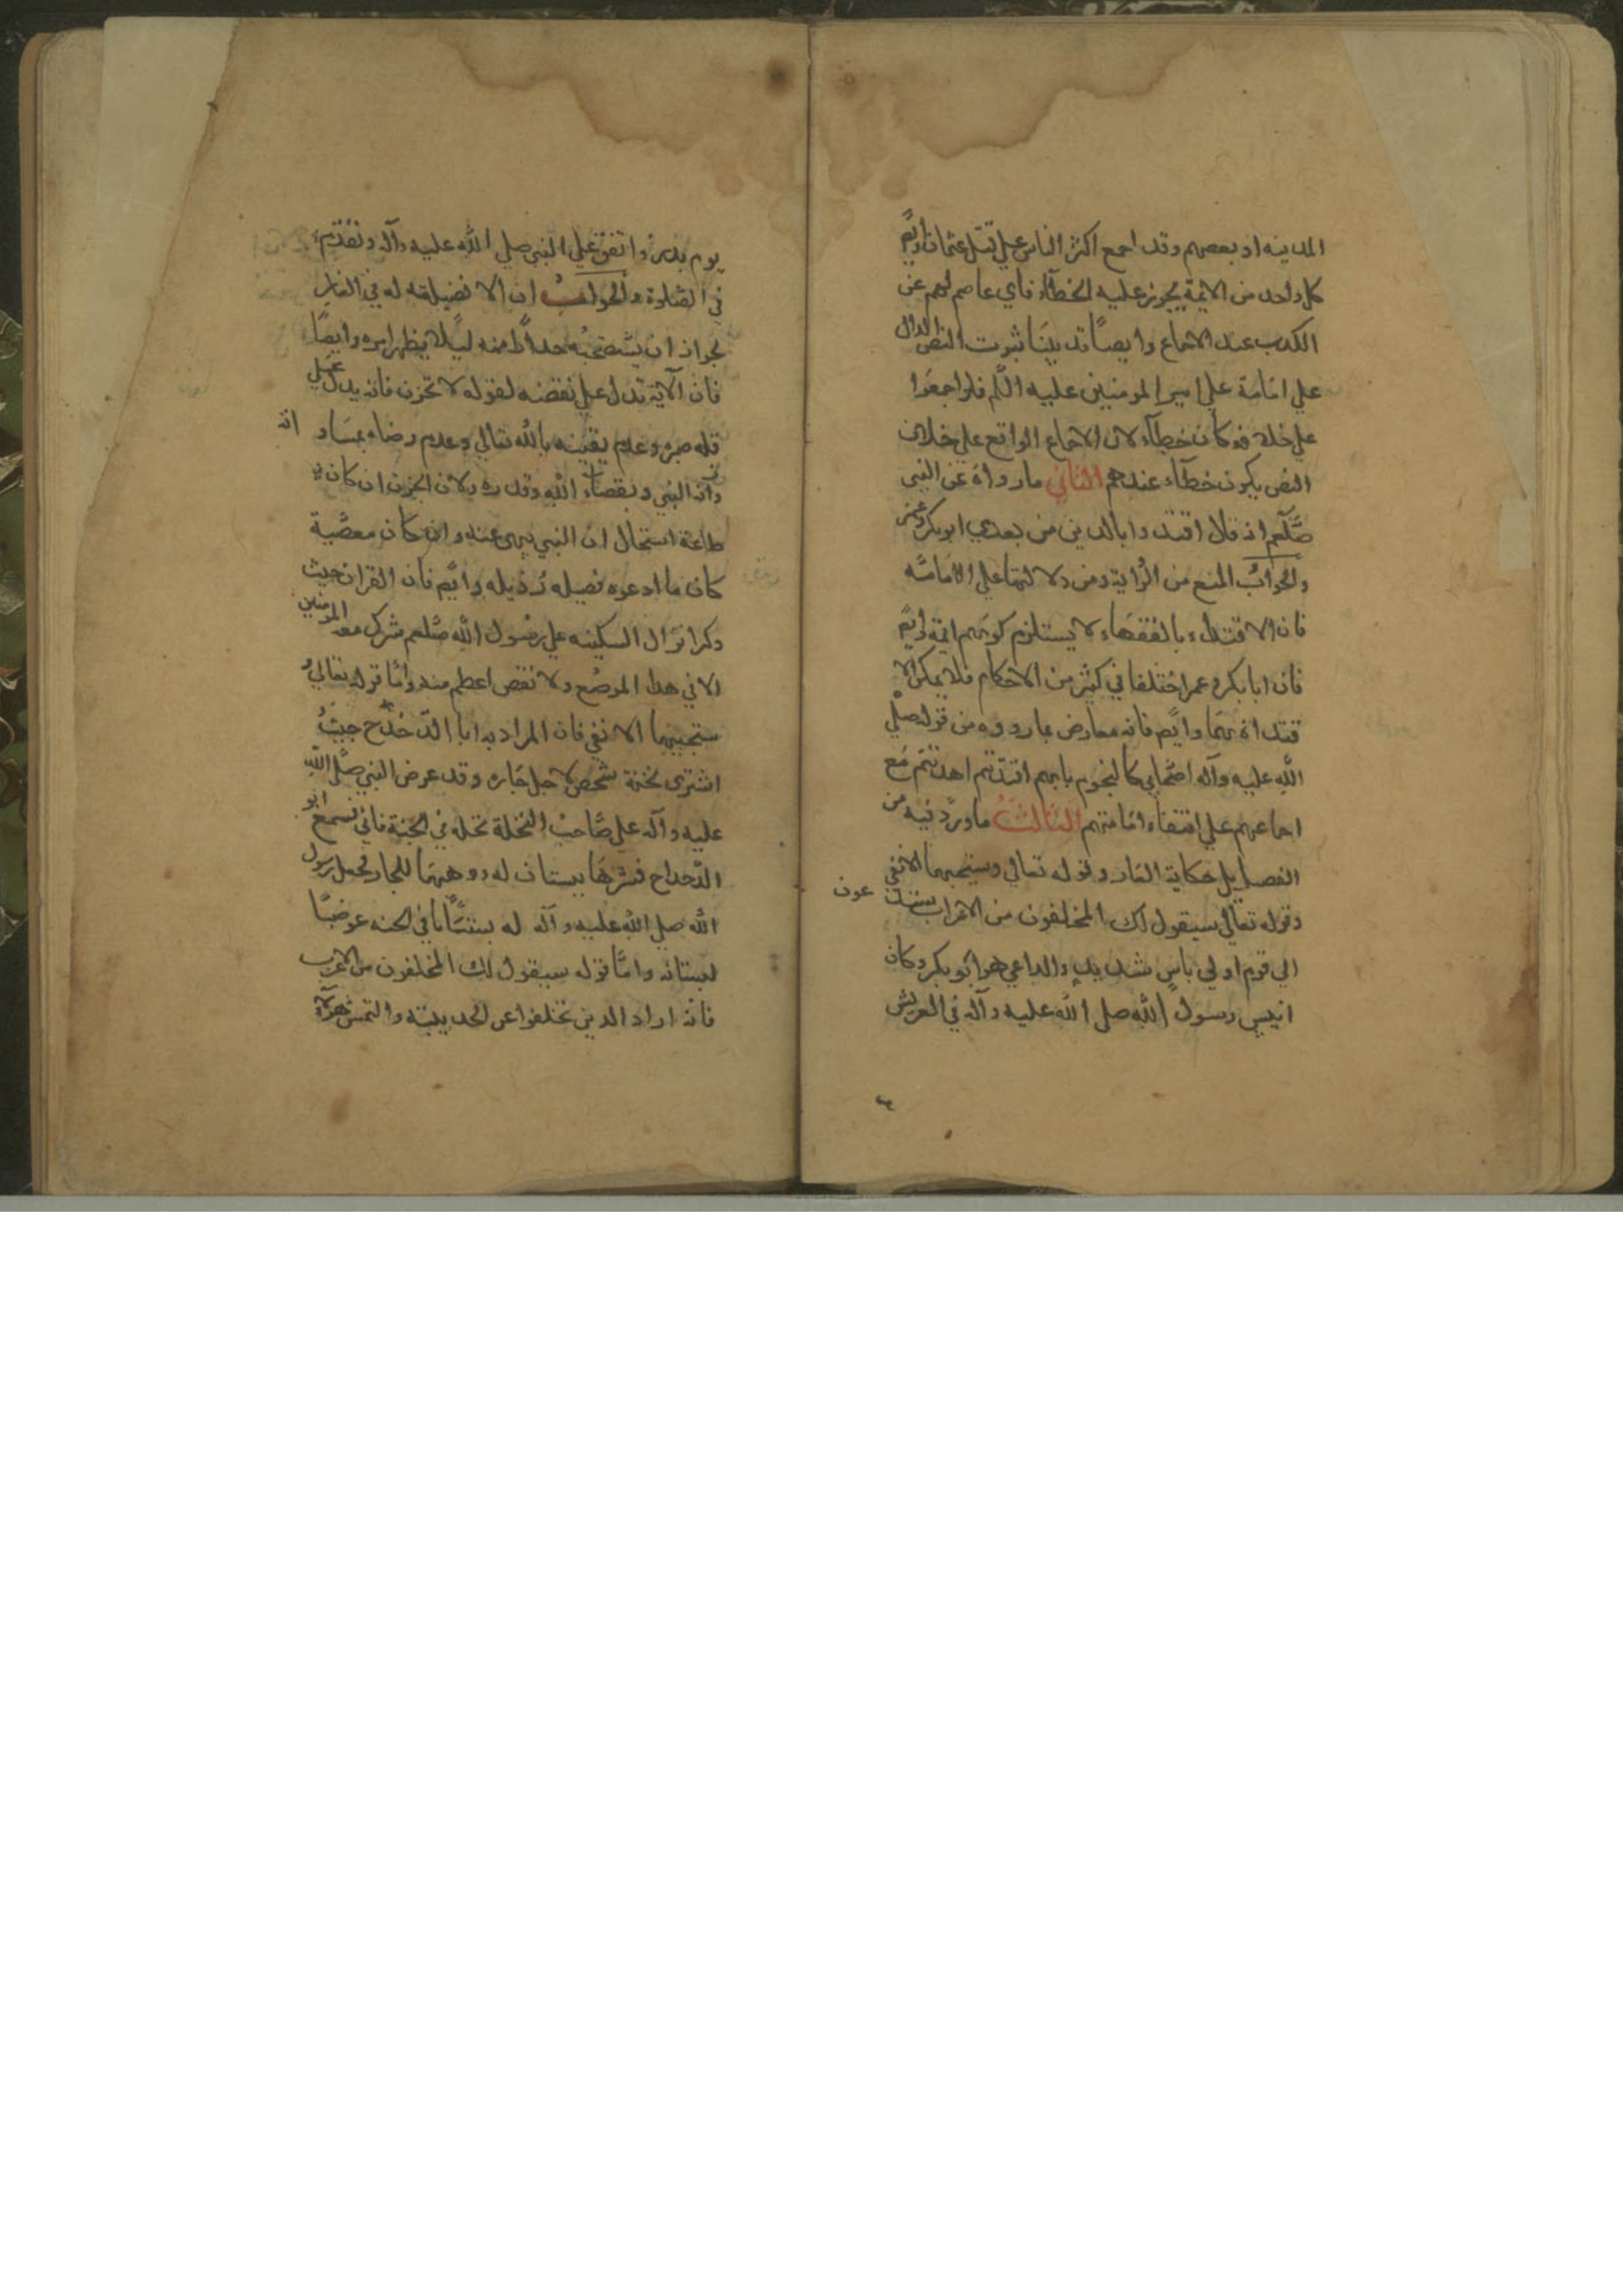 المدينه او بعضهم وقد اجمع اكثر الناس على قتل عثمان وايضً
كل واحد من الائمة يجوز عليه الخطآء فاي عاصم لهم عن
الكدب عند الاجماع وايضًا قد بينَا ثبوت النص الدال
علي امَامة علي امير المومنين عليه السَّلم فلو اجمعَوا
علي خلافه كان خطآءً لان الاجماع الواقع علي خلاف
النص يكون خطآء عندهم الثاني ما رواهُ عَن النبي
صَلَّعم انه قال اقتدوا بالدين من بعدي ابوبكر وعمر
والجوابُ المنع من الرّواية ومن دلالتهَا علي الامَامَه
فان الاقتدآء بالفقهَاء لا يستلزم كونهم ائمة وايضً
فان ابابكر وعمر اختلفا في كثير من الاحكام فلا يمكن الا
قتدآء بهمَا وايضً فانه معارض بما رووه من قوله صلي
الله عليه وآله اصحَابي كالنجوم بايهم اقتديتم اهتديتم مَع
اجماعهم علي انتفاء امَامتهم الثالثُ ما ورد فيه من
الفضايل كحكاية الغار وقوله تعالي وسيجنبهَا الاتقي
وقوله تعَالي سيقول لك المخلفون من الاعراب ستدعون
الي قوم اولي باسٍ شديدٍ والداعي هو ابوبكر وكان
انيس رسول الله صلي الله عليه وآله في العريش
يوم بدر وانفق علي النبي صلي الله عليه وآله وتقدم
في الصَلوة والجوابُ ان لا فضيلة له في الغارِ
لجواز ان يستصحبُه حذرًا منه ليلا يظهر امره وايضًا
فان الآية تدل علي نقضه لقوله لا تحزن فانه يدل عَلي
قله صبره وعدم يقينه بالله تعالي وعدم رضاه بمسَاواته
النبي وبقضاء الله وقدره ولان الحزن ان كان
طاعة استحَال ان النبي ينهي عنه وان كان معصَية
كان ما ادعوه فضيله رُذيله وايضً فان القران حيث
دكر انزال السكينه علي رسُول الله صَلعم شرك معه المومنين
الا في هدا الموضع ولا نقص اعظم منه وامَا قوله تعَالي و
سيجنبهَا الاتقي فان المراد به ابا الدّحدَاح حيثُ
اشتري نخلة شخص لاجل جَاره وقد عرض النبي صَلي الله
عليه وآله علي صَاحبُ النخلة نخلة في الجنة فابي فسمع ابو
الدّحداح فشرَهَا ببستان له ووهبهَا للجار فجعل رسول
الله صلي الله عليه وآله له بستَانًا في الجنه عوضًا
لبستانه وامَّا قوله سيقول لك المخلفون من الاعراب
فانه اراد الدين تخلفوا عن الحديبية والتمس هؤلآء